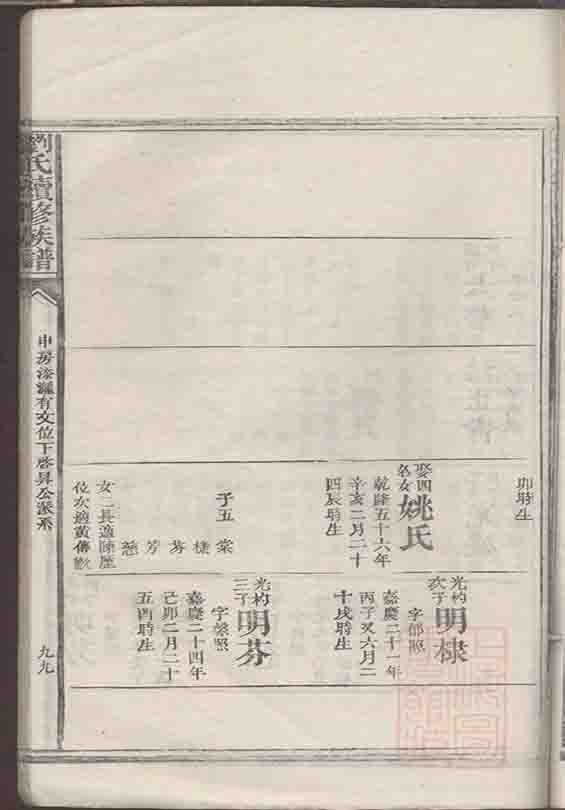 劉氏續修族譜
卯時生
娶四名女
姚氏
乾隆五十六年
辛亥二月二十
四辰時生
子五 棠
棣
芬
芳
慈
女二長適陳歷
位次適黃傳
光杓次子
明棣
字郁照
嘉慶二十一年
丙子又六月二
十戌時生
光杓三子
明芬
字
照
嘉慶二十四年
己卯二月二十
五酉時生
申房漆
有文位下啓昇公派系
九九